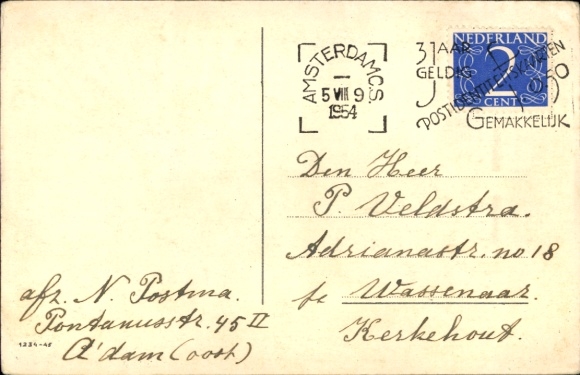 AMSTERDAM C.S
5 VIII 9
1954
3 JAAR
GELDIG
POSTIDENTITEITSKAARTEN
GEMAKKELIJK
NEDERLAND
2
CENT
Den Heer
P. Veldstra.
Adrianastr. no 18
te Wassenaar.
Kerkehout.
afz. N. Postma.
Pontanusstr. 45 II
A'dam (oost)
1334-42